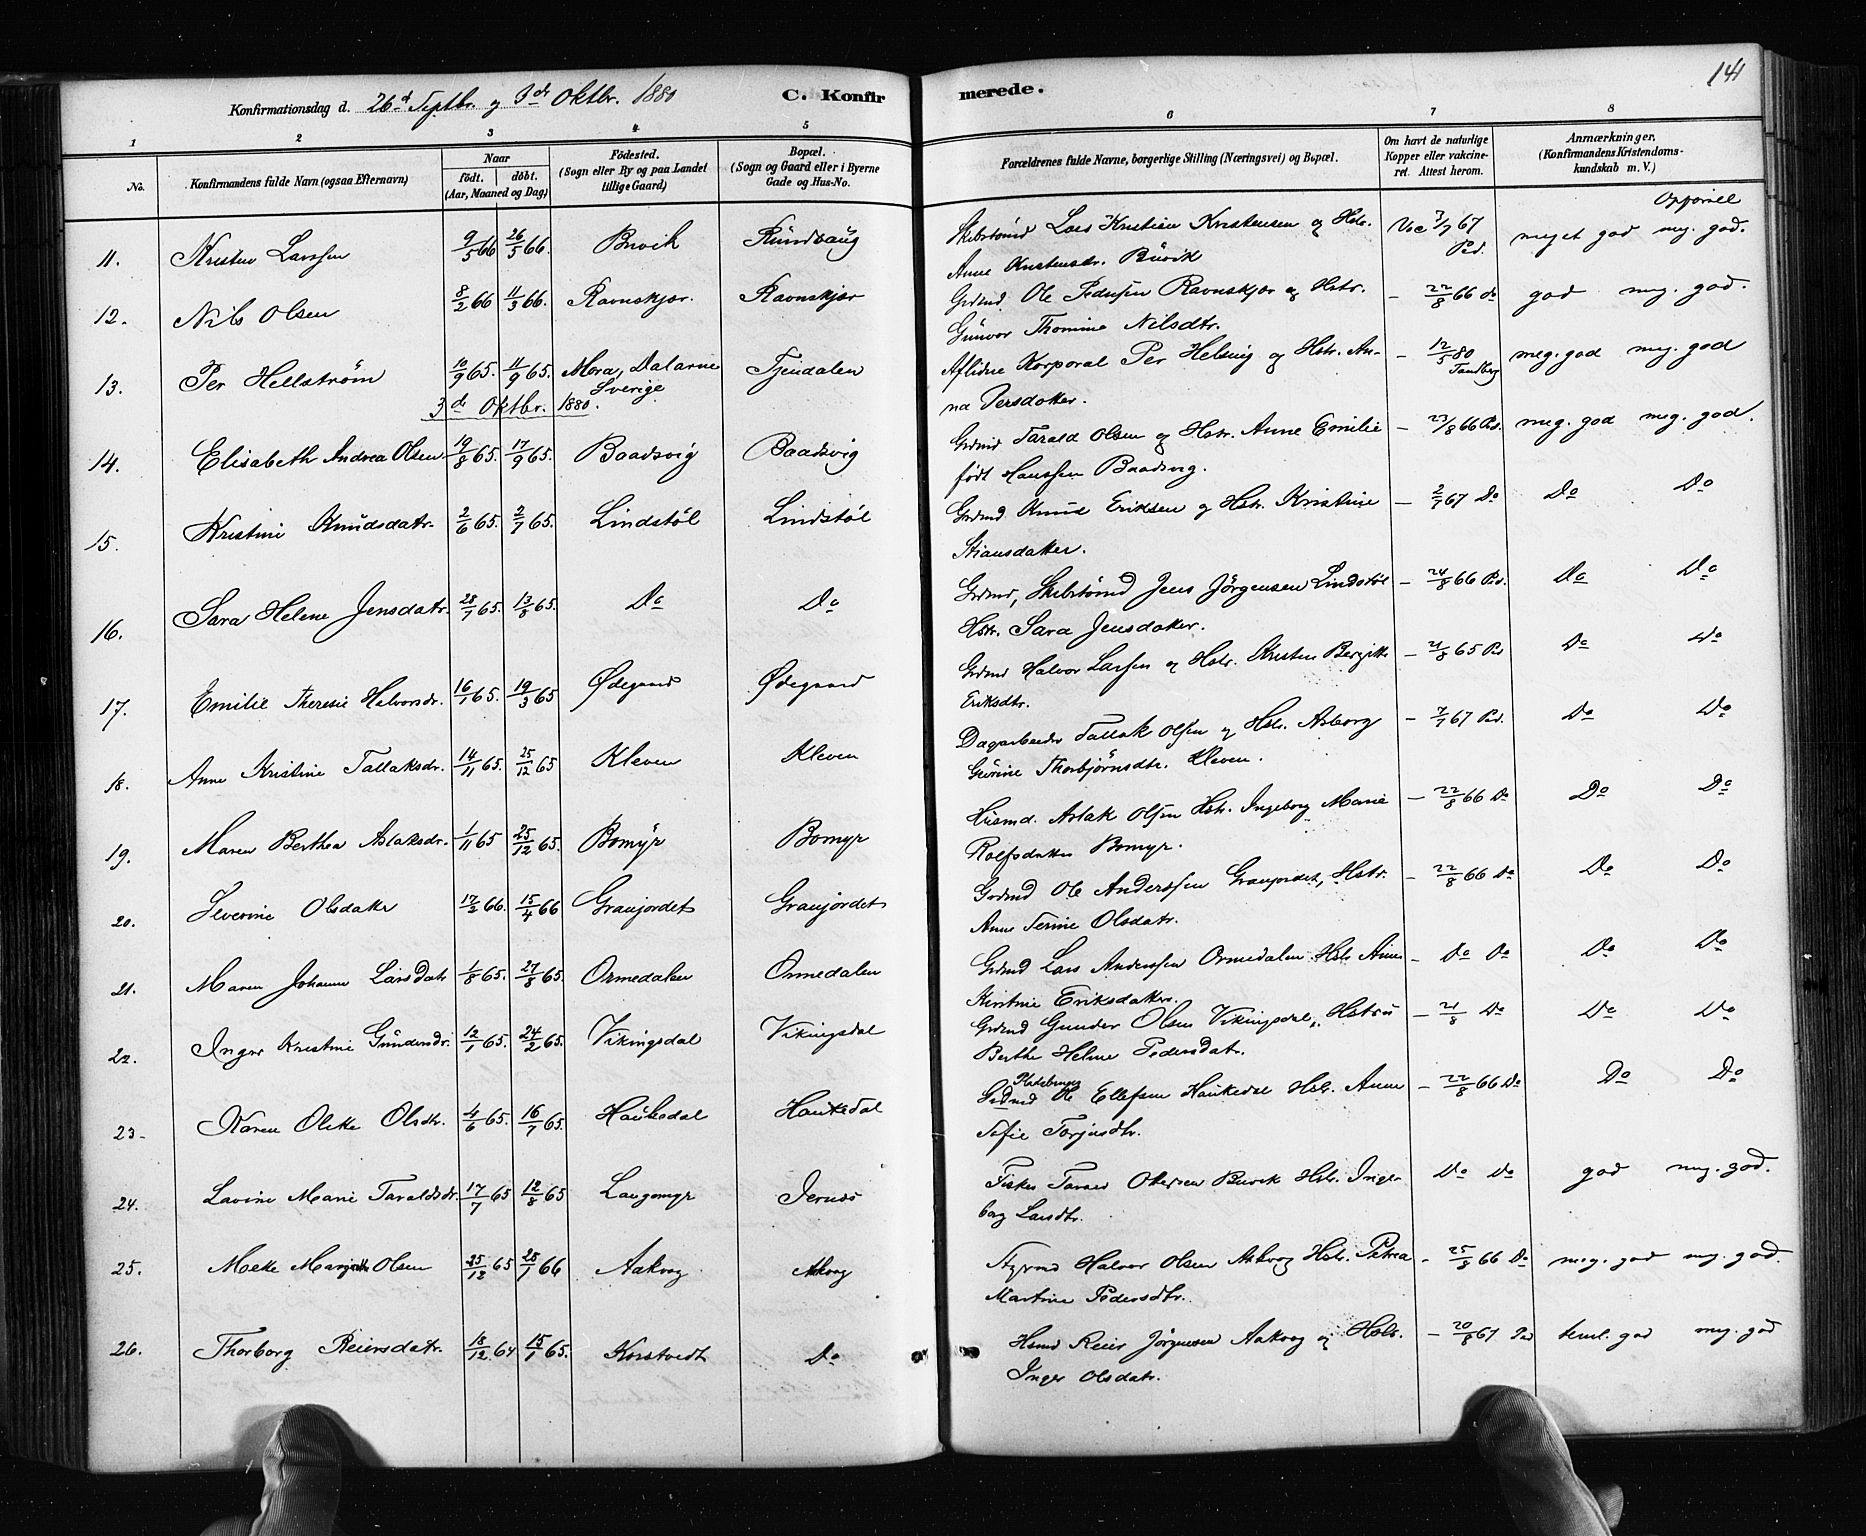 Konfirmationsdag d. 26d Septbr. og 3de Oktbr. 1880 C. Konfirmerede. 141
1 2 3 4 5 6 7 8
No. Konfirmandens fulde Navn (ogsaa Efternavn) Naar født. døbt. (Aar, Maaned og Dag) Fødested. (Sogn eller By og paa Landet tillige Gaard) Bopæl. (Sogn og Gaard eller i Byerne Gade og Hus-No. Forældrenes fulde Navne, borgerlige Stilling (Næringsvei) og Bopæl. Om havt de naturlige Kopper eller vakcineret. Attest herom. Anmærkninger. (Konfirmandens Kristendomskundskab m. V.)
Opførsel
11. Kristen Larssen 9/5 66 26/5 66. Buvik Rundvaug Skibstømd Lars Kristian Kristensen og Hstr. Vac 3/7 67 Pd. meget god meg. god.
Anne Kristensdr. Buvik
12. Nils Olsen 8/2 66 11/3 66. Ravnskjær. Ravnskjær Grdmd Ole Pedersen Ravnskjær og Hstr. - 22/8 66 do god meg. god.
Gunvor Thomine Nilsdtr.
13. Per Hellstrøm 10/9 65. 11/9 65. Mora, Dalarne Sverige Tjendalen Aflidne Korporal Per Helsing og Hstr. An- - 12/5 80 Tandberg meg. god meg. god
na Persdatter.
3de Oktbr. 1880.
14. Elisabeth Andrea Olsen 19/8 65. 17/9 65. Baadsvig Baadsvig Grdmd Tarald Olsen og Hstr. Anne Emilie - 23/8 66 Pd. meg. god meg. god.
født Hanssen Baadsvig.
15. Kristine Knudsdatr. 2/6 65. 2/7 65. Lindstøl Lindstøl Grdmd Knud Eriksen og Hstr. Kristine - 2/7 67 Do Do Do
Stiansdatter.
16. Sara Helene Jensdatr. 28/7 65. 13/8 65. Do Do Grdmd, Skibstømd Jens Jörgensen Lindstøl - 24/8 66 Pd. Do Do
Hstr. Sara Jensdatter.
17. Emilie Theresie Halvorsdr. 16/1 65. 19/3 65 Ødegaard Ødegaard Grdmd Halvor Larsen og Hstr. Kristen Bergitte - 21/8 65 Pd Do Do
Eriksdtr.
18. Anne Kristine Tallaksdr. 14/11 65. 25/12 65 Kleven Kleven Dagarbeider Tallak Olsen og Hstr. Asborg - 7/7 67 Pd. Do Do
Gurine Thorbjørnsdtr. Kleven.
19. Maren Berthea Aslaksdr. 1/11 65 25/12 65. Bomyr Bomyr Husmd. Aslak Olsen Hstr. Ingeborg Marie - 22/8 66 Do Do Do
Rolfsdatter Bomyr.
20. Severine Olsdatter 17/2 66. 15/4 66 Granjordet Granjordet Grdmd Ole Anderssen Granjordet, Hstr. - 22/8 66 Do Do Do
Anne Terine Olsdatr.
21. Maren Johanne Larsdatr 1/8 65. 27/8 65. Ormedalen Ormedalen Grdmd Lars Anderssen Ormedalen Hstr Anne - Do Do Do Do
Kirstine Eriksdatter.
22. Inger Kristine Gundersdr. 12/1 65. 24/2 65. Vikingsdal Vikingsdal Grdmd Gunder Olsen Vikingsdal, Hstru - 21/8 Do Do Do
Berthe Helene Pedersdatr.
23. Karen Oleke Olsdtr. 4/6 65. 16/7 65. Haukedal Haukedal Grdmd Ole Ellefsen Haukedal Hstr. Anne - 22/8 66 Do Do Do
Sofie Torjusdtr.
24. Lavine Marie Taraldsdr. 17/7 65 12/8 65 Langemyr Jernæs Fisker Tarald Buvik Hstr. Inge- Do Do god meg. god.
borg Larsdtr.
25. Meke Margrethe Olsen 25/12 65 28/1 66 Aakvog Aakvog Styrmd Halvor Olsen Aakvog Hstr. Petrea - 25/8 66 Do meg. god meg. god.
Martine Pedersdtr.
26. Thorborg Reiersdatr. 18/12 64 15/1 65. Korstvedt Do Hsmd Reier Jörgensen Aakvog og Hstr. - 20/8 67 Pd teml. god meg. god
Inger Olsdatr.